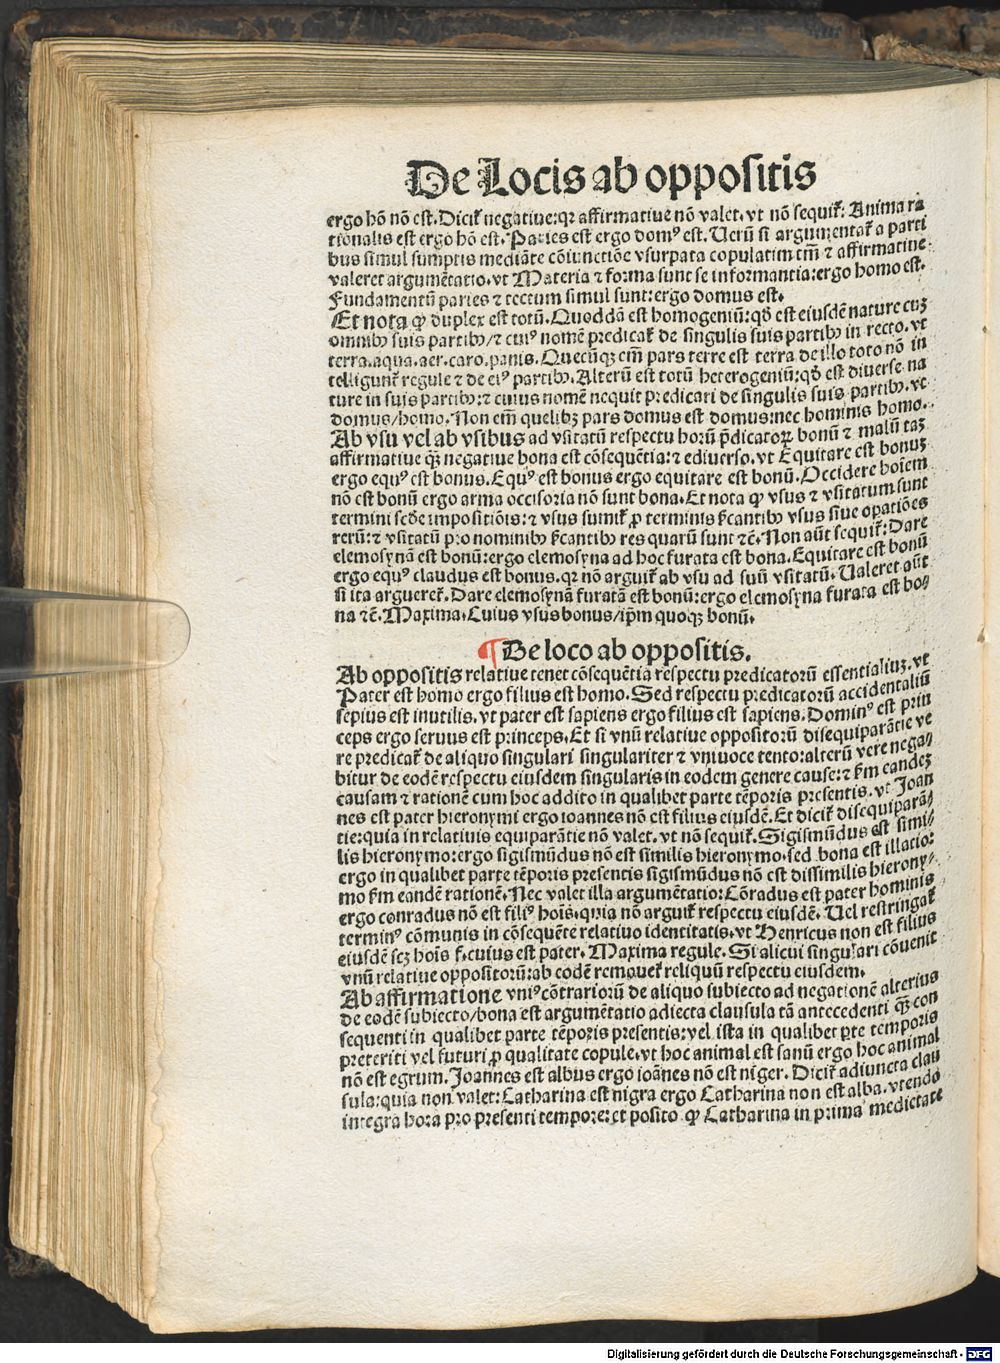 De Locis ab oppositis
ergo hō nō est. Dicit᷑ negatiue: qꝛ affirmatiue nō valet. vt nō sequit᷑: Anima ra
tionalis est ergo hō est. Paries est ergo domꝰ est. Uerū si argumentat᷑ a parti
bus simul sumptis mediāte cōiunctiōe vsurpata copulatim tm̄ ⁊ affirmatiue:
valeret argumētatio. vt Materia ⁊ forma sunt se informantia: ergo homo est.
Fundamentū paries ⁊ tectum simul sunt: ergo domus est.
Et nota ꝙ duplex est totū. Quoddā est homogeniū: qd̄ est eiusdē nature cuꝫ
omnibꝰ suis partibꝰ/ ⁊ cuiꝰ nomē predicat᷑ de singulis suis partibꝰ in recto. vt
terra. aqua. aer. caro. panis. Quecūqꝫ em̄ pars terre est terra de illo toto nō in
telligunt᷑ regule ⁊ de eiꝰ partibꝰ. Alterū est totū heterogeniū: qd̄ est diuerse na
ture in suis partibꝰ: ⁊ cuius nomē nequit predicari de singulis suis partibꝰ. vt
domus/homo. Non em̄ quelibꝫ pars domus est domus: nec hominis homo.
Ab vsu vel ab vsibus ad vsitatū respectu horū p̄dicatoꝝ bonū ⁊ malū taꝫ
affirmatiue qꝫ̄ negatiue bona est cōsequētia: ⁊ ediuerso. vt Equitare est bonuꝫ
ergo equꝰ est bonus. Equꝰ est bonus ergo equitare est bonū. Occidere hoīem
nō est bonū ergo arma occisoria nō sunt bona. Et nota ꝙ vsus ⁊ vsitatum sunt
termini scd̄e impositiōis: ⁊ vsus sumit᷑ ꝓ terminis ſc̄antibꝰ vsus siue opatiōes
rerū: ⁊ vsitatū pro nominibꝰ ſc̄antibꝰ res quarū sunt ⁊c̄. Non aūt sequit᷑: Dare
elemosynā est bonū: ergo elemosyna ad hoc furata est bona. Equitare est bonū
ergo equꝰ claudus est bonus. qꝛ nō arguit᷑ ab vsu ad suū vsitatū. Ualeret aūt
si ita argueret᷑. Dare elemosynā furatā est bonū: ergo elemosyna furata est bo⸗
na ⁊c̄. Maxima. Cuius vsus bonus/ip̄m quoqꝫ bonū.
¶ De loco ab oppositis.
Ab oppositis relatiue tenet cōsequētia respectu predicatorū essentialiuꝫ. vt
Pater est homo ergo filius est homo. Sed respectu predicatorū accidentaliū
sepius est inutilis. vt pater est sapiens ergo filius est sapiens. Dominꝰ est prin
ceps ergo seruus est princeps. Et si vnū relatiue oppositorū disequiparātie ve
re predicat᷑ de aliquo singulari singulariter ⁊ vniuoce tento: alterū vere nega⸗
bitur de eodē respectu eiusdem singularis in eodem genere cause: ⁊ ſm eandeꝫ
causam ⁊ rationē cum hoc addito in qualibet parte tēporis presentis. vt Joan
nes est pater hieronymi ergo ioannes nō est filius eiusdē. Et dicit᷑ disequiparā⸗
tie: quia in relatiuis equiparātie nō valet. vt nō sequit᷑. Sigismūdus est simi⸗
lis hieronymo: ergo sigismūdus nō est similis hieronymo. sed bona est illatio:
ergo in qualibet parte tēporis presentis sigismūdus nō est dissimilis hierony⸗
mo ſm eandē rationē. Nec valet illa argumētatio: Cōradus est pater hominis
ergo conradus nō est filiꝰ hoīs. quia nō arguit᷑ respectu eiusdē. Uel restringat᷑
terminꝰ cōmunis in cōsequēte relatiuo identitatis. vt Henricus non est filius
eiusdē scꝫ hoīs ſ. cuius est pater. Maxima regule. Si alicui singulari cōuenit
vnū relatiue oppositorū: ab eodē remouet᷑ reliquū respectu eiusdem.
Ab affirmatione vniꝰ cōtrariorū de aliquo subiecto ad negationē alterius
de eodē subiecto/bona est argumētatio adiecta clausula tā antecedenti qꝫ̄ con
sequenti in qualibet parte tēporis presentis: vel ista in qualibet ꝑte temporis
preteriti vel futuri ꝓ qualitate copule. vt hoc animal est sanū ergo hoc animal
nō est egrum. Joannes est albus ergo ioānes nō est niger. Dicit᷑ adiuncta clau
sula: quia non valet: Catharina est nigra ergo Catharina non est alba. vtendo
integra hora pro presenti tempore: et posito ꝙ Catharina in prima medietate
Digitalisierung gefördert durch die Deutsche Forschungsgemeinschaft - DFG